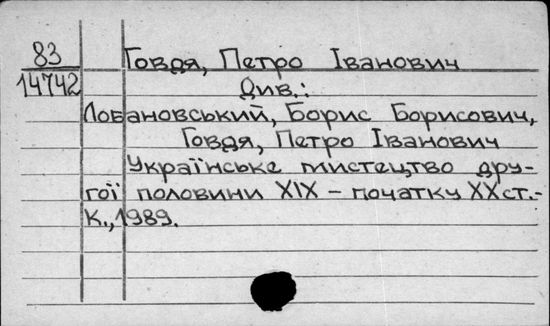 83
14742
Говдя, Петро Іванович
Див.:
Лобановський, Борис Борисович,
Говдя, Петро Іванович
Українське мистецтво дру-
гої половини XIX – початку XX ст.-
К., 1989.